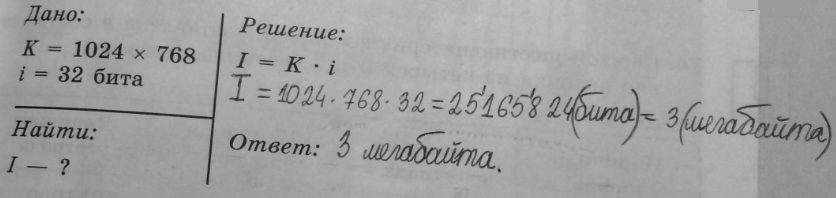 Дано:
K = 1024 × 768
i = 32 бита
Найти:
I — ?
Решение:
I = K · i
I = 1024 · 768 · 32 = 25'1658'24(бита) = 3(мегабайта)
Ответ: 3 мегабайта.